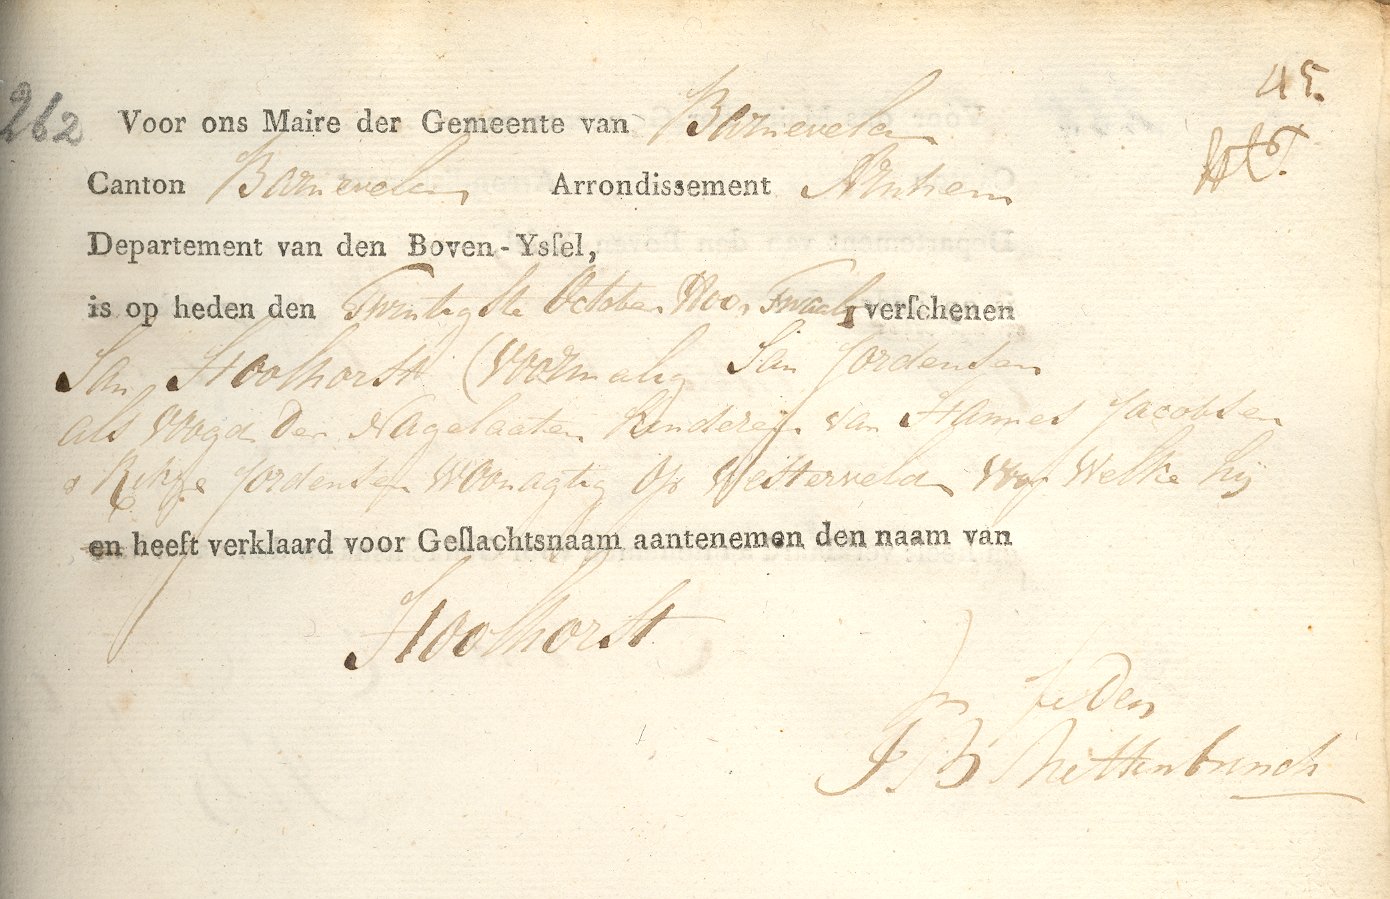 262
45.
Voor ons Maire der Gemeente van Barneveld
Canton Barneveld Arrondissement Arnhem
Departement van den Boven-Ysſel,
is op heden den Twintigste October Twaalf verſchenen
Jan Hoolhorst (voormalig Jan Jordensen
als Voogd der Nagelaaten Kinderen van Hannes Jacobsen
& Rikje Jordensen Woonagtig Op Westerveld Voor Welke hij
en heeft verklaard voor Geſlachtsnaam aantenemen den naam van
Hoolhorst
In feden